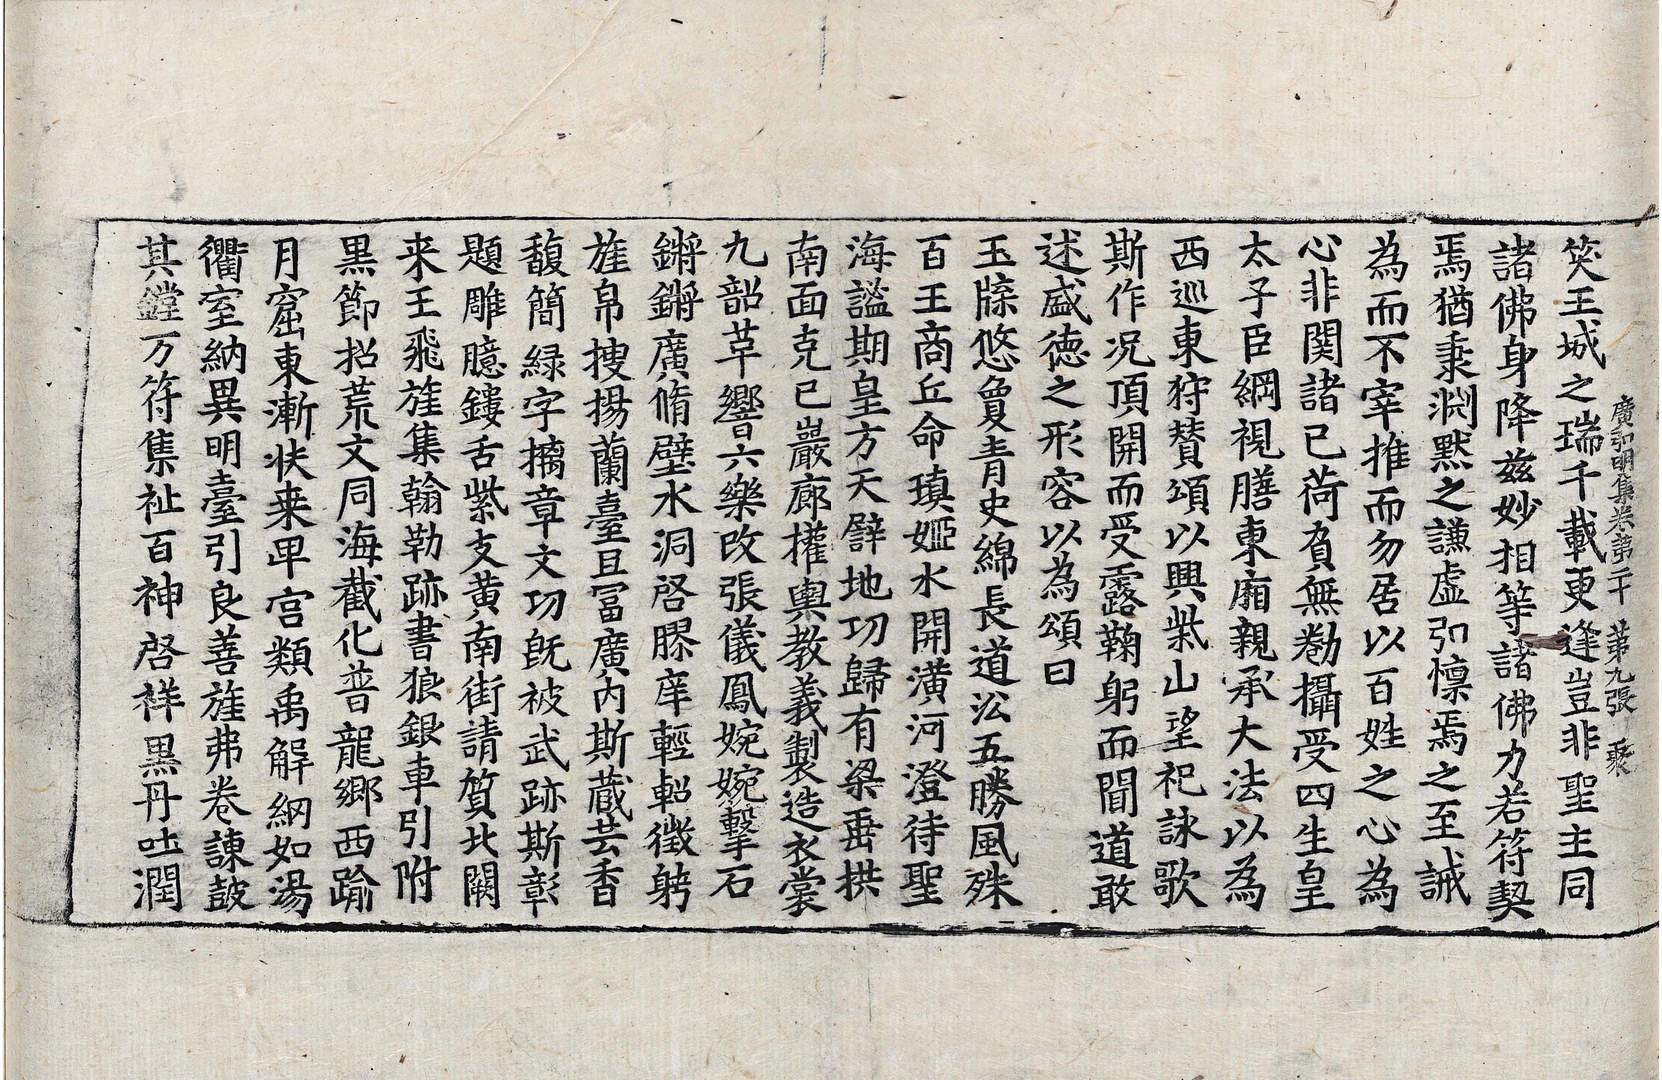 廣弘明集卷第二十 第九張 聚
笑王城之瑞千載更逢豈非聖主同
諸佛身降兹妙相等諸佛力若符契
焉猶秉渊默之謙虛弘懔焉之至誠
為而不宰推而勿居以百姓之心為
心非関諸已荷負無勌攝受四生皇
太子臣綱視膳東廂親承大法以為
西巡東狩賛頌以興柴山望祀詠歌
斯作况頂開而受露鞠躬而聞道敢
述盛徳之形容以為頌曰
玉牒悠夐青史綿長道泌五勝風殊
百王商丘命瑱㛗水開潢河澄待聖
海謐期皇方天譬地功歸有梁垂拱
南面克已巖廊權輿教義製造衣裳
九韶革響六樂改張儀鳳婉婉擊石
鏘鏘廣脩壁水洞啓膠庠輕軺徵躬
旌帛搜揚蘭臺且冨廣内斯蔵芸香
馥簡緑字摛章文功旣被武跡斯彰
題雕臆鏤舌紫支黄南街請質北闕
来王飛旌集翰勒跡書狼銀車引附
黒節招荒文同海截化普龍鄉西踰
月窟東漸扶来甲宫類禹解綱如湯
衢室納異明臺引良善旌弗卷諫鼓
其鏜万符集祉百神啓祥黒丹吐潤